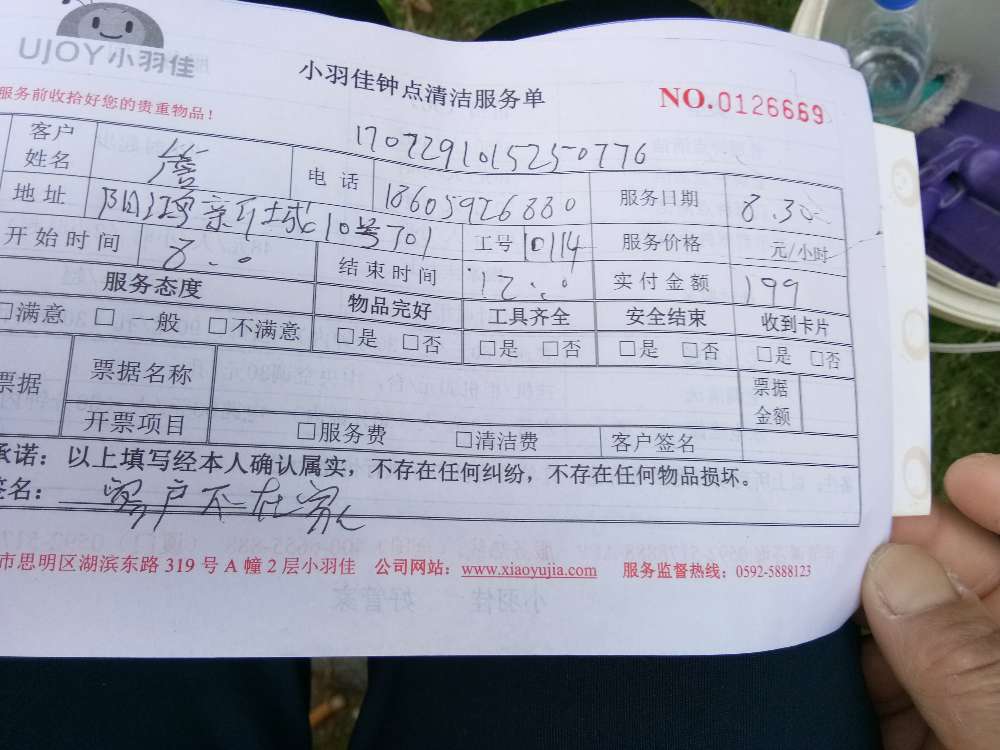 UJOY小羽佳
小羽佳钟点清洁服务单
NO.0126669
服务前收拾好您的贵重物品！
17072910152507 76
客户姓名 詹 电话 18605926880 服务日期 8.30
地址 阳 新城 10号701 工号 10114 服务价格 元/小时
开始时间 8:0 结束时间 12:0 实付金额 199
服务态度 物品完好 工具齐全 安全结束 收到卡片
□满意 □一般 □不满意 □是 □否 □是 □否 □是 □否 □是 □否
票据 票据名称 票据金额
开票项目 □服务费 □清洁费 客户签名
承诺：以上填写经本人确认属实，不存在任何纠纷，不存在任何物品损坏。
签名： 客户不在家
市思明区湖滨东路 319 号 A 幢 2 层小羽佳 公司网站：www.xiaoyujia.com 服务监督热线：0592-5888123